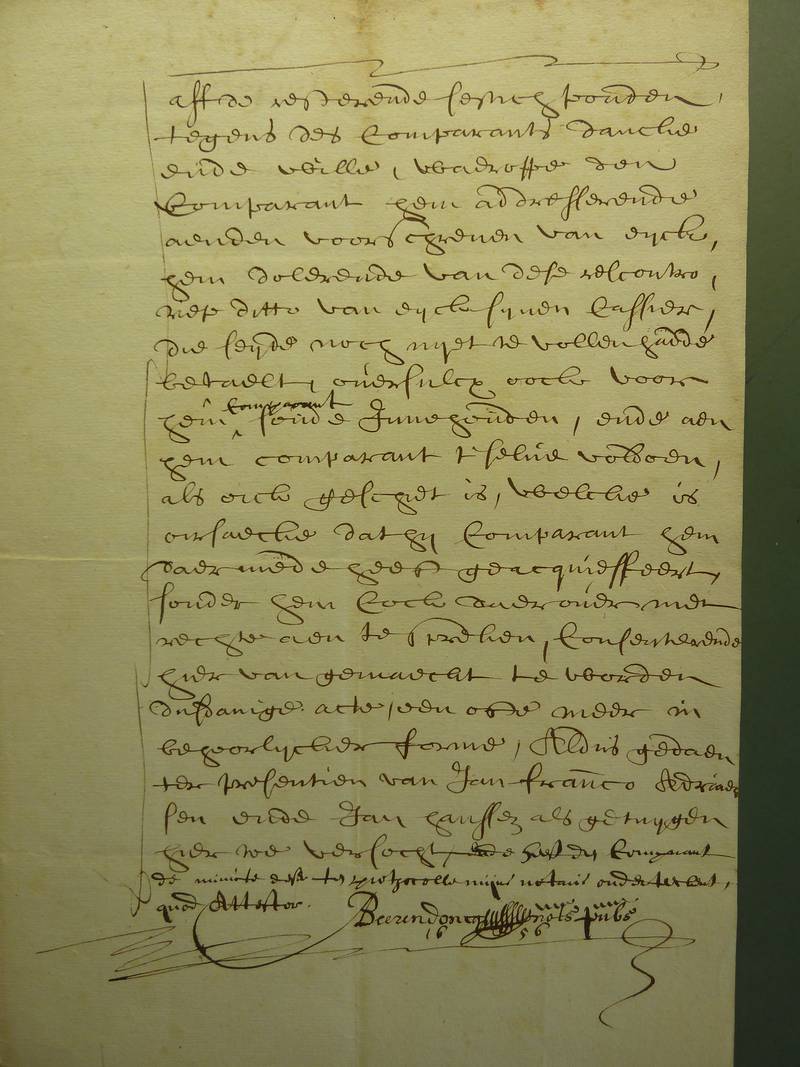 aff de resterende sestich ponden,
tegens des Comparants dancke
ende wille, waeroppe den
Comparant hem addresserende
aen den voorschreven van eyck,
hem dolerende van dese rescontro,
riep ditto van eyck synen Cassier,
die seyde noch nyet te vollen hadde
betaelt, oversulcx oock voor
hem comparant soude Innehouden, ende aen
hem comparant t'selve voldoen,
als oick geschiet is, welcke is
oirsaecke dat hy Comparant hem
daer mede heeft geacquiesseert,
sonder hem Cock daer over met
rechte aen te spreken, Consenterende
hier van gemaeckt te worden
dusdanige acte, een ofte meer in
behoorlycker forme, Aldus gedaen
ter presentien van Jan franco Adriaen
sen ende Jan hanssen als getuygen
hier toe versocht, ende heeft dy Comparant
de minute deser te prothocolle mijns notaris onderteekent,
quod Attestor. Beerendonck nots pub
16 56